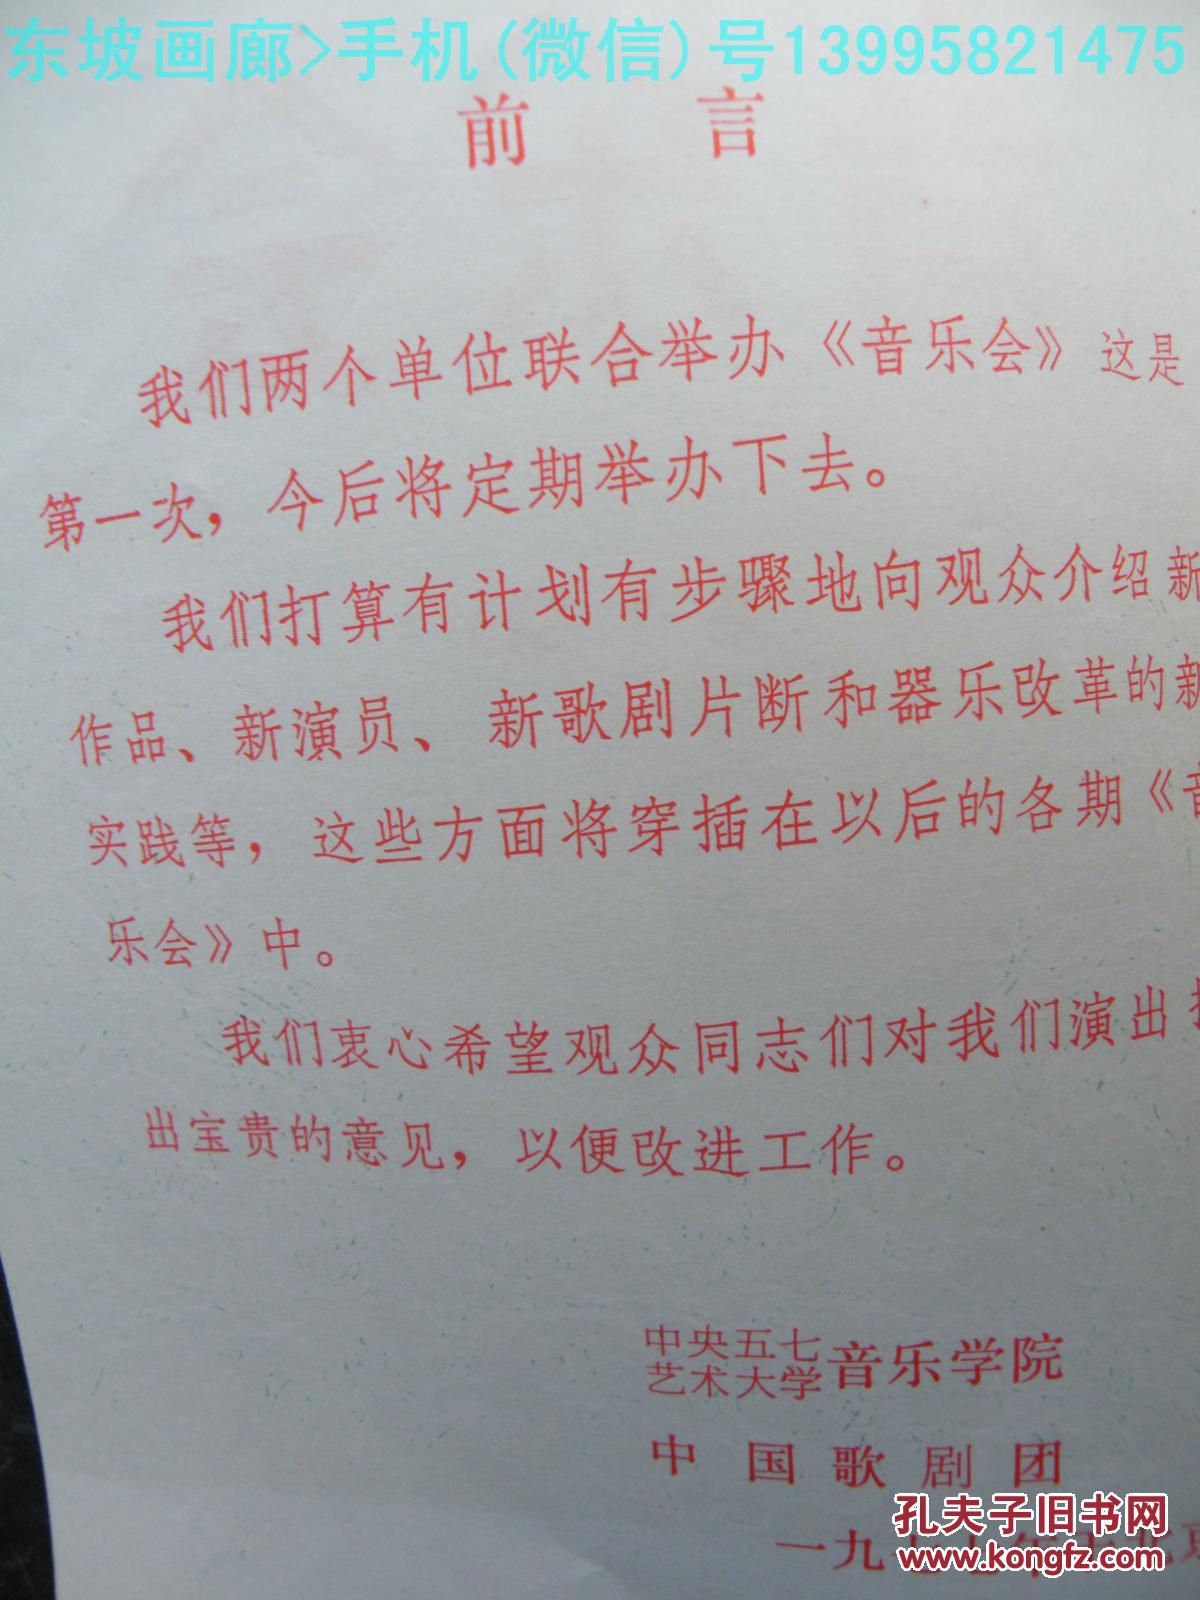 东坡画廊>手机(微信)号13995821475
前言
我们两个单位联合举办《音乐会》这是
第一次，今后将定期举办下去。
我们打算有计划有步骤地向观众介绍新
作品、新演员、新歌剧片断和器乐改革的新
实践等，这些方面将穿插在以后的各期《音
乐会》中。
我们衷心希望观众同志们对我们演出提
出宝贵的意见，以便改进工作。
中央五七
艺术大学音乐学院
中国歌剧团
孔夫子旧书网
一九七七年于北京
www.kongfz.com